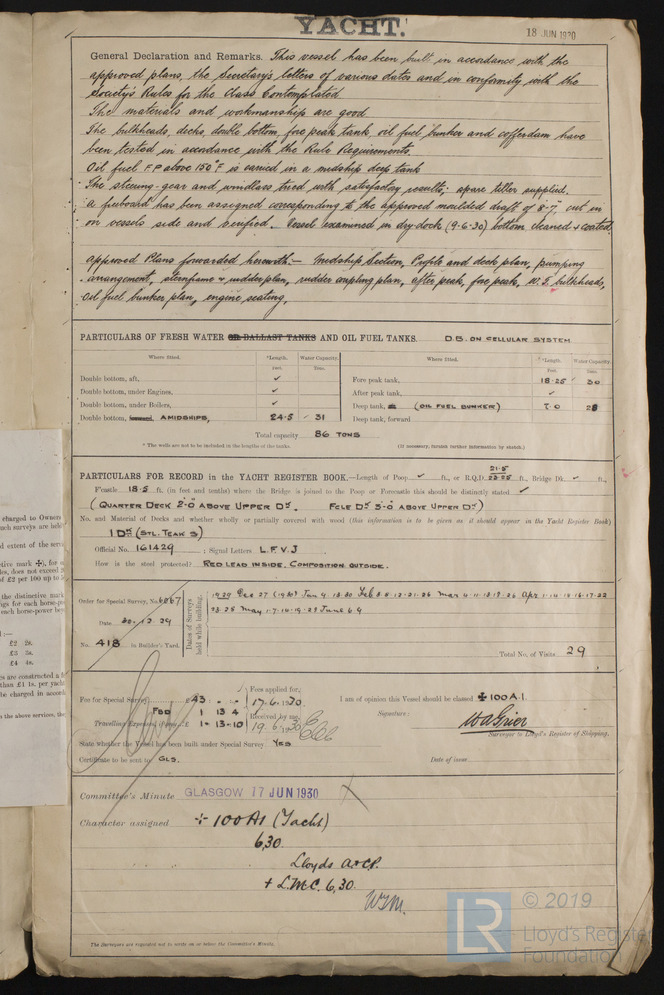 YACHT.
18 JUN 1930
General Declaration and Remarks. This vessel has been built in accordance with the
approved plans, the Secretary's letters of various dates and in conformity with the
Society's Rules for the Class Contemplated
The materials and workmanship are good
The bulkheads, decks, double bottom, fore peak tank, oil fuel bunker and cofferdam have
been tested in accordance with the Rule Requirements.
Oil fuel F.P above 150°F is carried in a midship deep tank
The steering-gear and windlass tried with satisfactory results; spare tiller supplied.
A freeboard has been assigned corresponding to the approved moulded draft of 8'-7" cut in
on vessels side and verified. Vessel examined in dry dock (9-6-30) bottom cleaned & coated.
Approved Plans forwarded herewith:— Midship Section, Profile and deck plan, pumping
arrangement, sternframe & rudder plan, rudder coupling plan, after peak, fore peak, W.T. bulkheads,
oil fuel bunker plan, engine seating.
PARTICULARS OF FRESH WATER OR BALLAST TANKS AND OIL FUEL TANKS. D.B. ON CELLULAR SYSTEM
Where fitted. *Length. Water Capacity. Where fitted. *Length. Water Capacity.
Feet. Tons. Feet. Tons.
Double bottom, aft, ✓ Fore peak tank, 18.25 30
Double bottom, under Engines, ✓ After peak tank, ✓
Double bottom, under Boilers, ✓ Deep tank, (OIL FUEL BUNKER) 7.0 28
Double bottom, AMIDSHIPS, 24.5 31 Deep tank, forward
Total capacity 86 TONS
* The wells are not to be included in the lengths of the tanks. (If necessary, furnish further information by sketch.)
21.5
PARTICULARS FOR RECORD in the YACHT REGISTER BOOK.—Length of Poop ✓ ft., or R.Q.D. 23.25 ft., Bridge Dk. ✓ ft.,
F'castle 18.5 ft. (in feet and tenths) where the Bridge is joined to the Poop or Forecastle this should be distinctly stated ✓
(QUARTER DECK 2'-0" ABOVE UPPER Dk. FCLE Dk 3'-0" ABOVE UPPER Dk)
No. and Material of Decks and whether wholly or partially covered with wood (this information is to be given as it should appear in the Yacht Register Book)
1 Dk (STL. TEAK S)
Official No. 161429 ; Signal Letters L.F.V.J
How is the steel protected? RED LEAD INSIDE. COMPOSITION OUTSIDE.
Order for Special Survey, No. 6067
Date 30.12.29
No. 418 in Builder's Yard.
Dates of Surveys held while building.
1929 Dec 27 (1930) Jan 9.13.30 Feb 5.8.12.21.26 Mar 4.11.13.18.26 Apr 1.14.15.16.17.22
23.28 May 1.7.14.19.28 June 6 9
Total No. of Visits 29
Fee for Special Survey £43 : - : -
FBD 1 13 4
Travelling Expenses £ 1-13-10
Fees applied for, 17.6.1930.
Received by me, 19.6.1930
I am of opinion this Vessel should be classed ✠ 100 A.1.
Signature: W.A. Grier
Surveyor to Lloyd's Register of Shipping.
State whether the Vessel has been built under Special Survey YES
Certificate to be sent to GLS. Date of issue
Committee's Minute GLASGOW 17 JUN 1930
Character assigned + 100 A1 (Yacht)
6,30
Lloyds A&CP.
+ L.M.C. 6,30.
The Surveyors are requested not to write on or below the Committee's Minute.
charged to Owners
such surveys are held
d extent of the
of £2 per 100 up to
the distinctive mark
each horse-power
£2 2s.
£3 3s.
£4 4s.
than £1 1s. per yacht
be charged in accord
the above services,
LR
© 2019
Lloyd's Register
Foundation